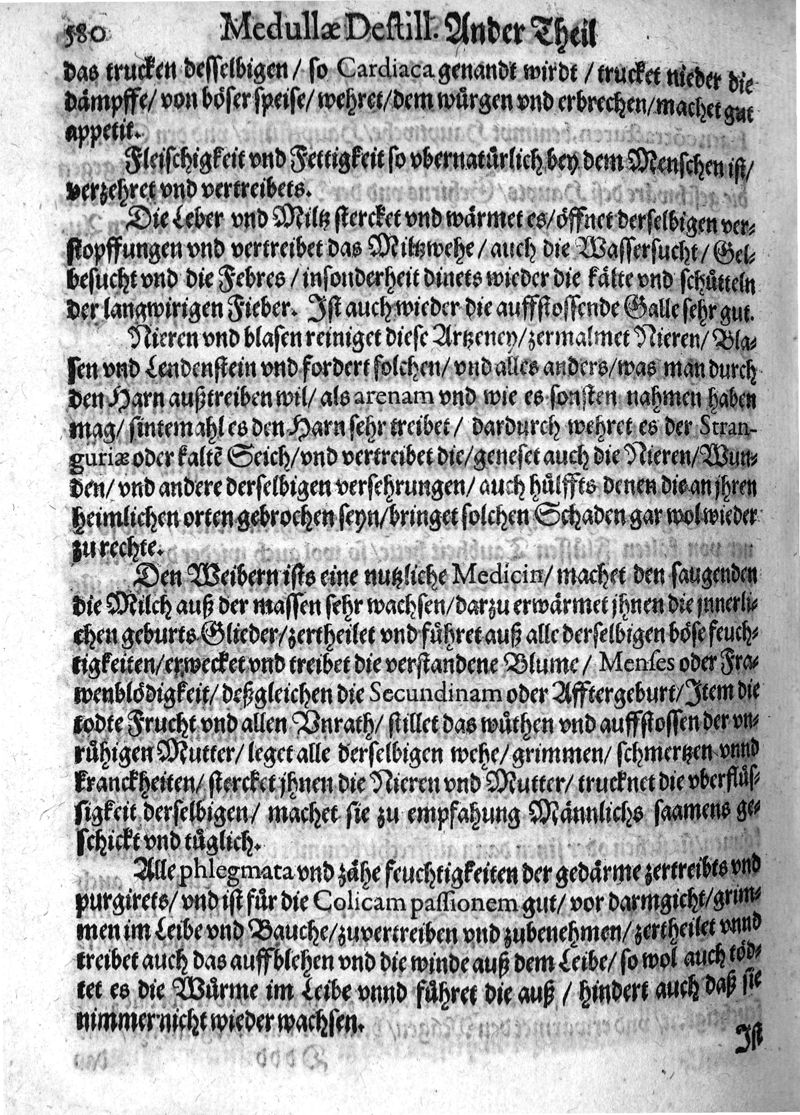 580 Medullæ Destill. Ander Theil
das trucken desselbigen/ so Cardiaca genandt wirdt / trucket nieder die
dämpffe/ von böser speise/ wehret/ dem würgen vnd erbrechen/ machet gut
appetit.
Fleischigkeit vnd Fettigkeit so vbernatürlich bey dem Menschen ist/
verzehret vnd vertreibets.
Die Leber vnd Miltz stercket vnd wärmet es/ öffnet derselbigen ver-
stopffungen vnd vertreibet das Miltzwehe / auch die Wassersucht/ Gel-
besucht vnd die Febres / insonderheit dinets wieder die kälte vnd schütteln
der langwirigen Fieber. Ist auch wieder die auffstossende Galle sehr gut.
Nieren vnd blasen reiniget diese Artzeney/ zermalmet Nieren/ Bla-
sen vnd Lendenstein vnd fordert solchen/ vnd alles anders/ was man durch
den Harn außtreiben wil/ als arenam vnd wie es sonsten nahmen haben
mag/ sintemahl es den Harn sehr treibet / dardurch wehret es der Stran-
guriæ oder kaltẽ Seich/ vnd vertreibet die/ geneset auch die Nieren/ Wun-
den/ vnd andere derselbigen versehrungen/ auch hülffts denen die an jhren
heimlichen orten gebrochen seyn/ bringet solchen Schaden gar wol wieder
zu rechte.
Den Weibern ists eine nutzliche Medicin/ machet den saugenden
die Milch auß der massen sehr wachsen/ darzu erwärmet jhnen die jnnerli-
chen geburts Glieder/ zertheilet vnd führet auß alle derselbigen böse feuch-
tigkeiten/ erwecket vnd treibet die verstandene Blume / Menses oder Fra-
wenblödigkeit/ deßgleichen die Secundinam oder Afftergeburt/ Item die
todte Frucht vnd allen Vnrath/ stillet das wüthen vnd auffstossen der vn-
rühigen Mutter/ leget alle derselbigen wehe/ grimmen/ schmertzen vnnd
kranckheiten/ stercket jhnen die Nieren vnd Mutter/ trucknet die vberflüs-
sigkeit derselbigen/ machet sie zu empfahung Männlichs saamens ge-
schickt vnd tüglich.
Alle phlegmata vnd zähe feuchtigkeiten der gedärme zertreibts vnd
purgirets/ vnd ist für die Colicam passionem gut/ vor darmgicht/ grim-
men im Leibe vnd Bauche/ zuvertreiben vnd zubenehmen/ zertheilet vnnd
treibet auch das auffblehen vnd die winde auß dem Leibe/ so wol auch töd-
tet es die Würme im Leibe vnnd führet die auß / hindert auch daß sie
nimmer nicht wieder wachsen.
Ist